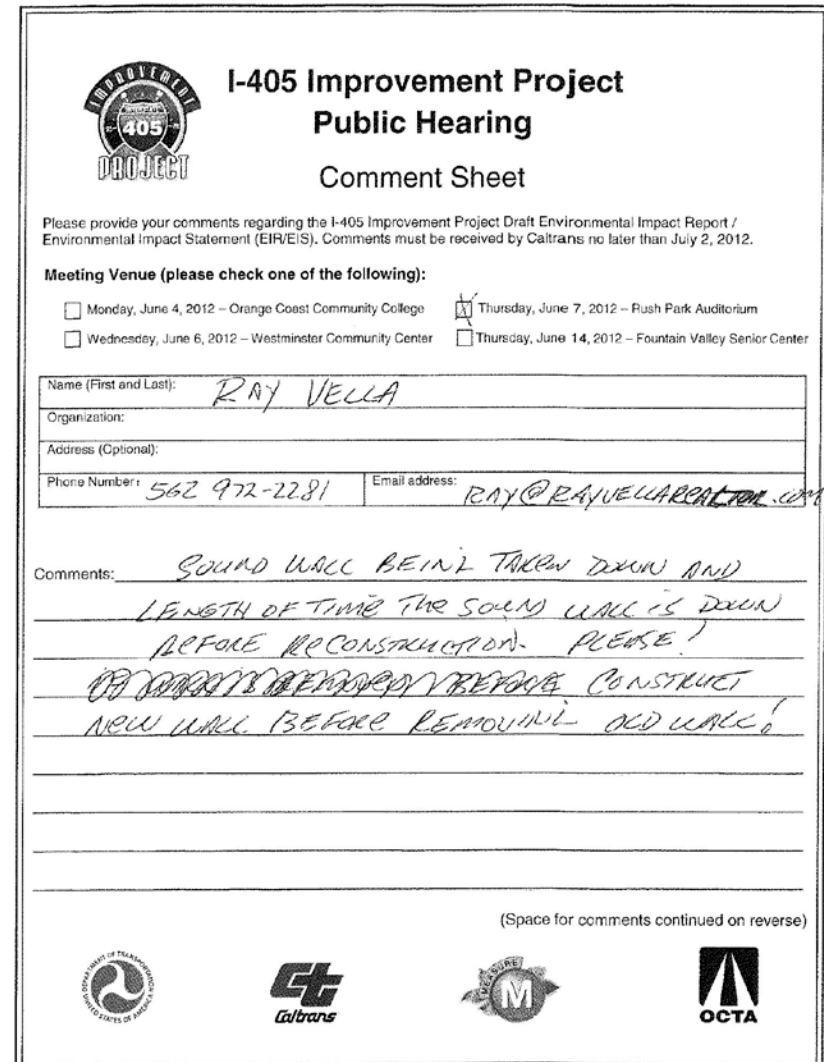 IMPROVEMENT
405
PROJECT
I-405 Improvement Project
Public Hearing
Comment Sheet
Please provide your comments regarding the I-405 Improvement Project Draft Environmental Impact Report /
Environmental Impact Statement (EIR/EIS). Comments must be received by Caltrans no later than July 2, 2012.
Meeting Venue (please check one of the following):
Monday, June 4, 2012 – Orange Coast Community College
X Thursday, June 7, 2012 – Rush Park Auditorium
Wednesday, June 6, 2012 – Westminster Community Center
Thursday, June 14, 2012 – Fountain Valley Senior Center
Name (First and Last): RAY VELLA
Organization:
Address (Optional):
Phone Number: 562 972-2281 Email address: RAY@RAYVELLAREALTOR.COM
Comments: SOUND WALL BEING TAKEN DOWN AND
LENGTH OF TIME THE SOUND WALL IS DOWN
BEFORE RECONSTRUCTION. PLEASE!
BEFORE CONSTRUCT
NEW WALL BEFORE REMOVING OLD WALL!
(Space for comments continued on reverse)
DEPARTMENT OF TRANSPORTATION
UNITED STATES OF AMERICA
Caltrans
MEASURE
M
OCTA